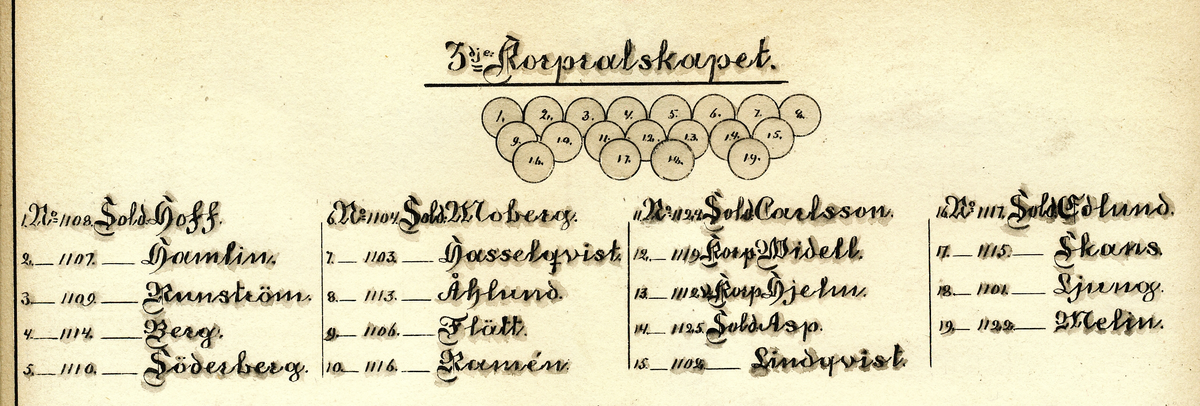 3dje Korpralskapet.
1. 2. 3. 4. 5. 6. 7. 8.
9. 10. 11. 12. 13. 14. 15.
16. 17. 18. 19.
1. No 1108. Sold. Hoff.
2. — 1107. — Hamlin.
3. — 1109. — Runström.
4. — 1114. — Berg.
5. — 1110. — Söderberg.
6. No 1104. Sold. Moberg.
7. — 1103. — Hasselqvist.
8. — 1113. — Åhlund.
9. — 1106. — Flätt.
10. — 1116. — Ramén.
11. No Sold. Carlsson.
12. — 1119. Korp. Widell.
13. — Korp. Hjelm.
14. — 1125. Sold. Asp.
15. — 1102. — Lindqvist.
16. No 1117. Sold. Edlund.
17. — 1115. — Skans.
18. — 1101. — Ljung.
19. — — Melin.